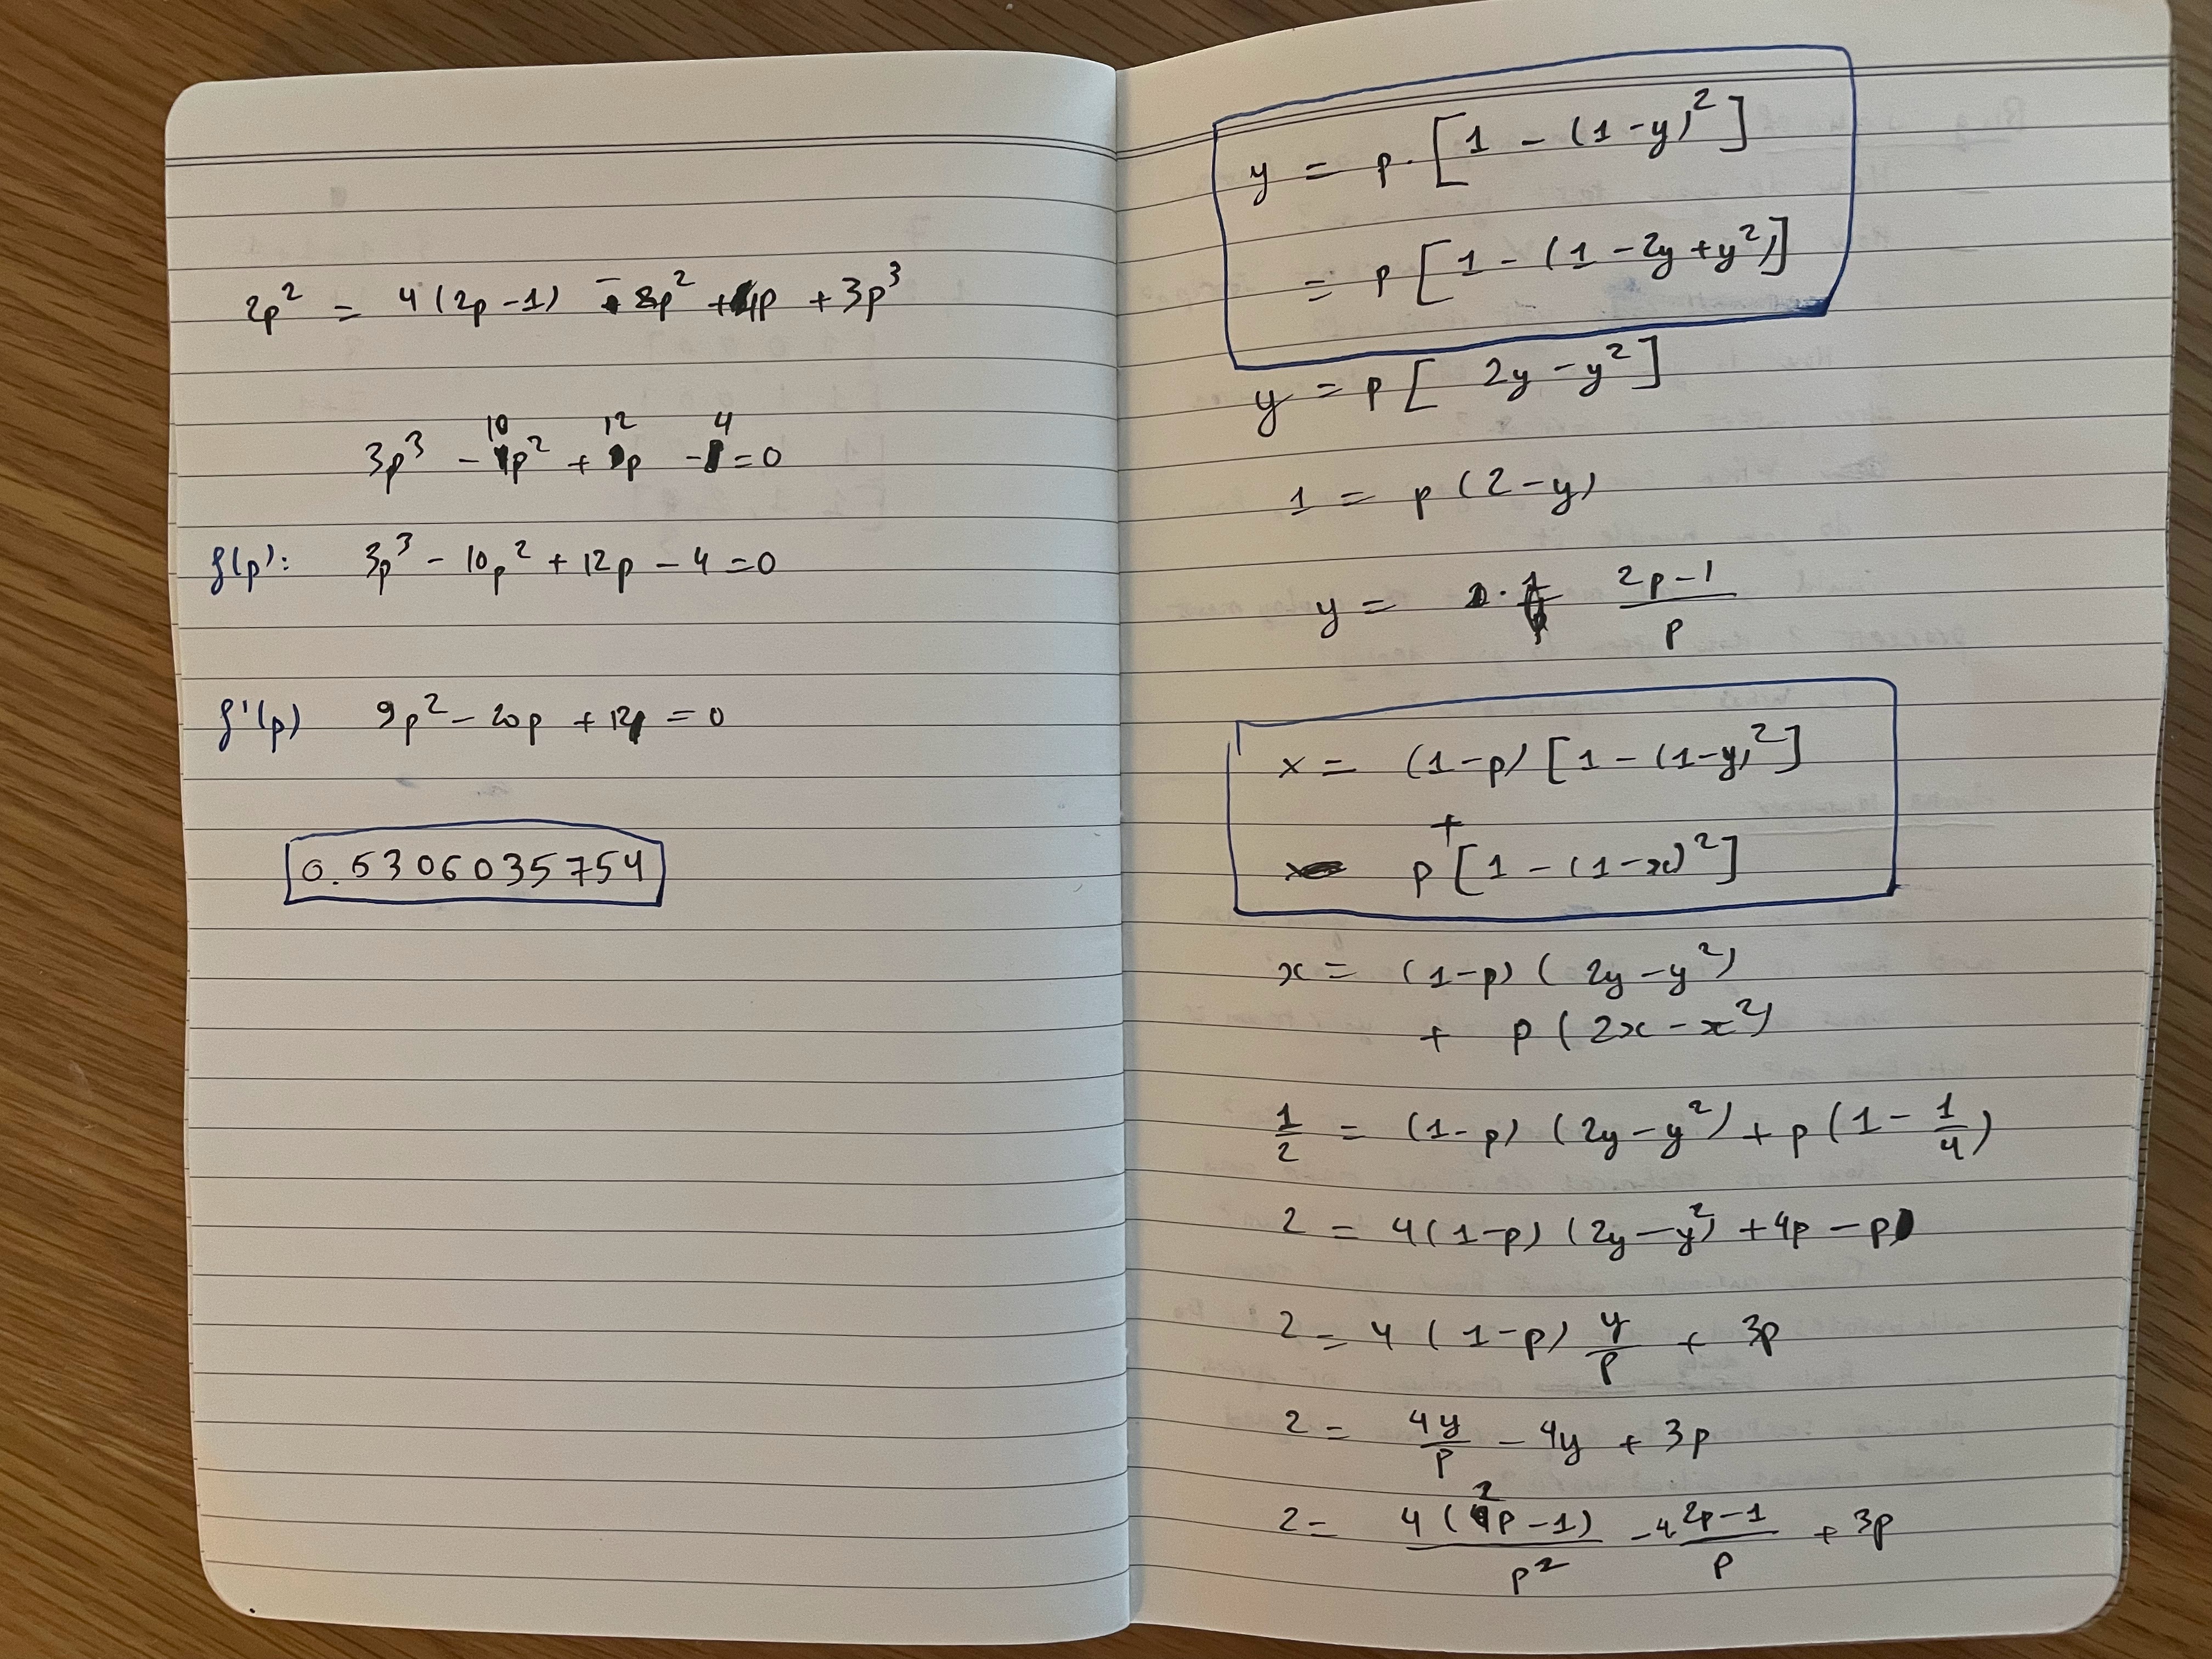 2p² = 4(2p-1) - 8p² + 4p + 3p³
3p³ - 10p² + 12p - 4 = 0
f(p): 3p³ - 10p² + 12p - 4 = 0
f'(p) 9p² - 20p + 12 = 0
0.5306035754
y = p·[1 - (1-y)²]
= p[1 - (1 - 2y + y²)]
y = p[2y - y²]
1 = p(2-y)
y = (2p-1)/p
x = (1-p)[1 - (1-y)²]
+
p[1 - (1-x)²]
x = (1-p)(2y - y²)
+ p(2x - x²)
1/2 = (1-p)(2y - y²) + p(1 - 1/4)
2 = 4(1-p)(2y - y²) + 4p - p
2 = 4(1-p) y/p + 3p
2 = 4y/p - 4y + 3p
2 = 4(2p-1)/p² - 4 (2p-1)/p + 3p